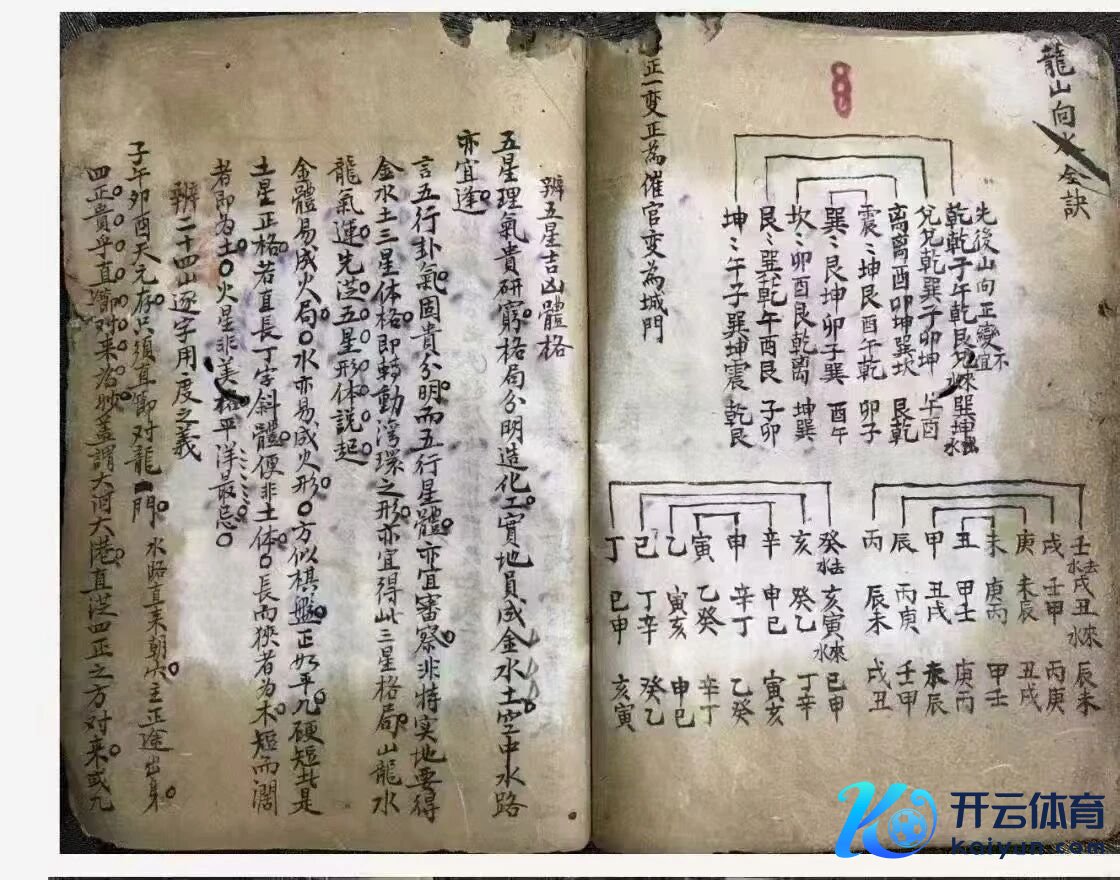 龍山向水全訣
先後山向正變宜不
乾乾子午乾艮兌來水巽坤出水
兌兌乾巽子卯坤 午酉
離離酉卯坤巽坎 艮乾
震〻坤艮酉午乾 卯子
巽〻艮坤卯子巽 酉午
坎〻卯酉艮乾離 坤巽
艮〻巽乾午酉艮 子卯
坤〻午子巽坤震 乾艮
正一变正為催官变為城門
壬去水 戌丑來水 辰未
戌 壬甲 丙庚
庚 未辰 丑戌
未 庚丙 甲壬
丑 甲壬 庚丙
甲 丑戌 未辰
辰 丙庚 壬甲
丙 辰未 戌丑
癸去水 亥寅來水 巳申
亥 癸乙 丁辛
辛 申巳 寅亥
申 辛丁 乙癸
寅 乙癸 辛丁
乙 寅亥 申巳
巳 丁辛 癸乙
丁 巳申 亥寅
辨五星吉凶體格
五星理氣貴研窮格局分明造化工實地員成金水土空中水路
亦宜逢
言五行卦氣固貴分明而五行星體亦宜審察非特实地要得
金水土三星体格即轉動湾環之形亦宜得此三星格局山龍水
龍氣運先從五星形体説起
金體易成火局水亦易成火形方似棋盤正如平九硬短此是
土星正格若直長丁字斜體便非土体長而狹者為木短而濶
者即為土火星非美格平洋最忌
辨二十四山逐字用度之義
子午卯酉天元存只須直節对龍門 水路直来朝穴主正途出身
四正貴乎直濟对来為妙蓋謂大河大港直從四正之方对来或九
开云体育
kaiyun.com